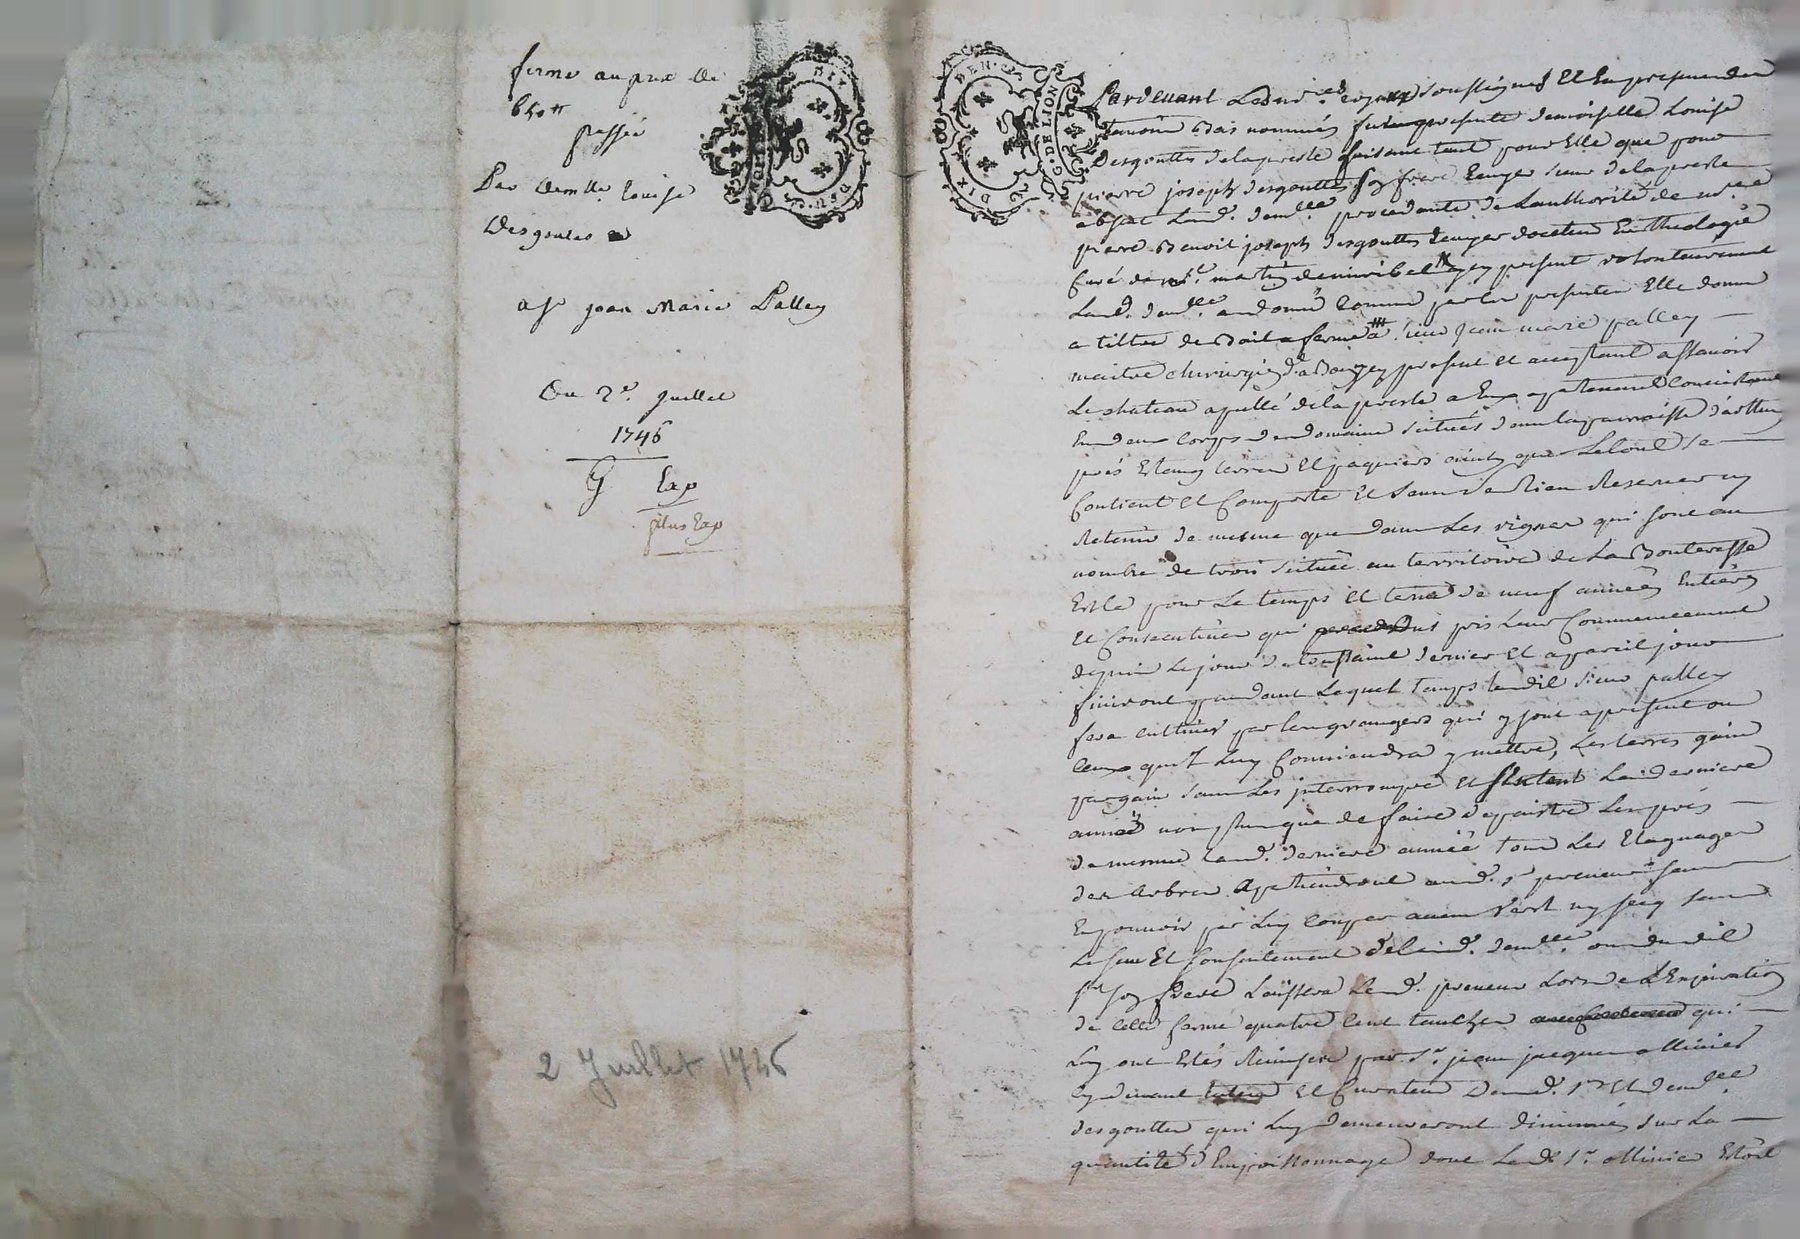 ferme au prix de
650 tt
passée
Par demlle Louise
Desgoutes
a Sr jean Marie Palley
Du 2e. juillet
1746
G Exp
plus Exp
2 Juillet 1746
GEN. DE LION
DIX DEN.
Pardevant soussignés Et En presence des
temoins Bas nommés fut presente demoiselle Louise
Desgouttes delapreste faisant tant pour Elle que pour
pierre joseph desgouttes son frere Ecuyer sieur delapreste
absent Lad. demlle procedante de Lauthorité de
pierre Benoit joseph desgouttes Ecuyer docteur En theologie
Curé de martin present volontairement
Lad. demlle a donné Comme par les presentes Elle donne
a tiltre de Bail a ferme a sieur jean marie palley
maitre chirurgien present et acceptant assavoir
Le chateau apellé dela preste a Eux apartenant Consistant
En deux Corps de domaine scitués dans la parroisse
prés Estang terres Et paquiers ainsy que Letout se
Contient Et Comporte Et sans de Rien Reserver ny
Retenir de mesme que dans Les vignes qui sont au
nombre de trois scituées au territoire de La
Et Ce pour Le temps Et terme de neuf années Entieres
Et Consecutives qui pris Leur Commencement
depuis Le jour de toussaint dernier Et a pareil jour
finiront pendant Lequel temps Ledit sieur palley
fera cultiver par les grangers qui y sont a present ou
Ceux qu'il Luy Conviendra y mettre, Les terres gain
par gain sans Les interrompre Et Laderniere
année non plus que de faire depaistre Les prés
de mesme Lad. derniere année tous Les Elaguages
des Arbres Apartiendront aud. sr preneur sans
Luy Couper aucun ny sans
Le sceu Et Consentement deladd. demlle ou dudit
sr son frere Laissera Led. preneur Lors de L'Expiration
de Cette ferme quatre Cent qui
Luy ont Estés par Sr. jean jacques ollivier
Cy devant Et Curateur Desd. sr Et demlle
desgouttes qui Luy demeureront diminués sur La
quantité d'Empoissonnage dont Led. Sr. ollivier Estoit